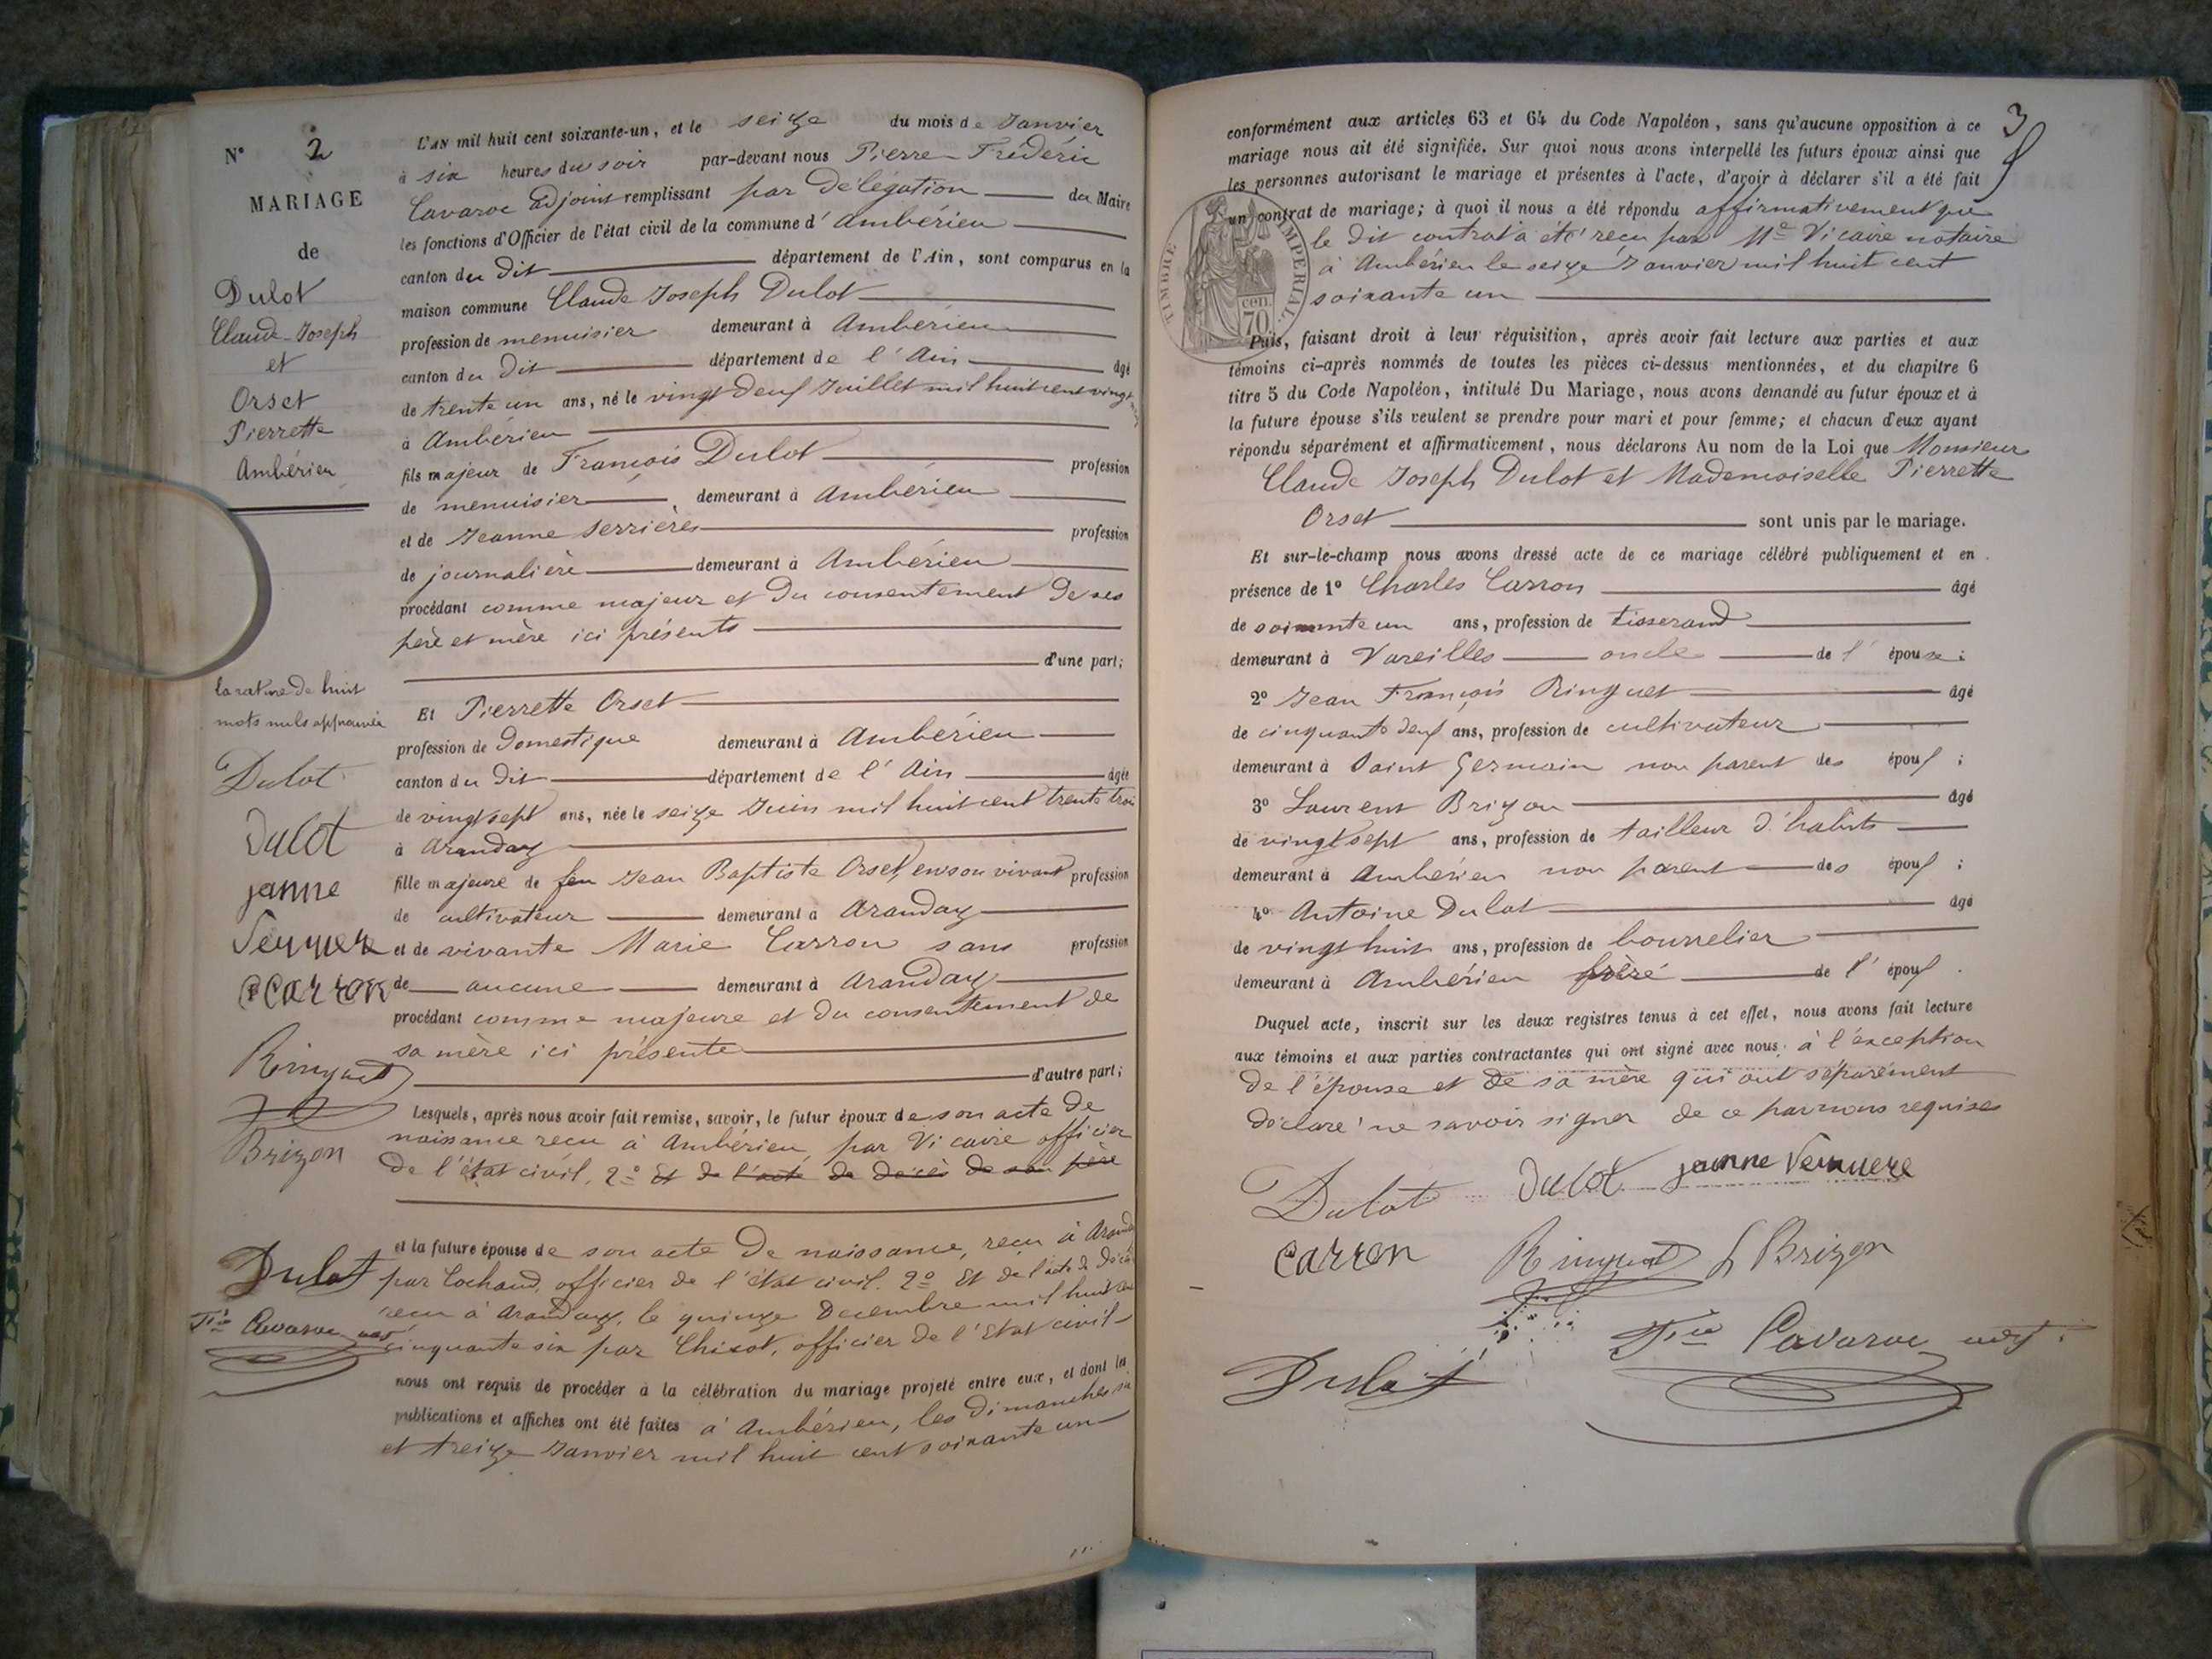 N° 2
MARIAGE
de
Dulot
Claude-Joseph
et
Orset
Pierrette
Ambérieu
la rature de huit
mots nuls approuvée
Dulot
Dulot
janne
Serriere
Carron
Ringuet
Brizon
Dulot
Fic Cavaroc adj
L'AN mil huit cent soixante-un, et le seize du mois de Janvier
à six heures du soir par-devant nous Pierre Frédéric
Cavaroc adjoint remplissant par délégation du Maire
les fonctions d'Officier de l'état civil de la commune d'Ambérieu
canton du dit département de l'Ain, sont comparus en la
maison commune Claude Joseph Dulot
profession de menuisier demeurant à Ambérieu
canton du dit département de l'Ain âgé
de trente un ans, né le vingt deuf Juillet mil huit cent vingt
à Ambérieu
fils majeur de François Dulot profession
de menuisier demeurant à Ambérieu
et de Jeanne Serrières profession
de journalière demeurant à Ambérieu
procédant comme majeur et du consentement de ses
père et mère ici présents
d'une part;
Et Pierrette Orset
profession de domestique demeurant à Ambérieu
canton du dit département de l'Ain âgée
de vingt sept ans, née le seize Juin mil huit cent trente trois
à Arandaz
fille majeure de feu Jean Baptiste Orset, en son vivant profession
de cultivateur demeurant à Arandaz
et de vivante Marie Carron sans profession
de aucune demeurant à Arandaz
procédant comme majeure et du consentement de
sa mère ici présente
d'autre part;
Lesquels, après nous avoir fait remise, savoir, le futur époux de son acte de
naissance reçu à Ambérieu par Vicaire officier
de l'état civil, 2° Et de l'acte de décès de son père
et la future épouse de son acte de naissance, reçu à Arand
par Cochaud, officier de l'état civil. 2° Et de l'acte de décès
reçu à Arandaz, le quinze Decembre mil huit cent
cinquante six par Chixot, officier de l'Etat civil
nous ont requis de procéder à la célébration du mariage projeté entre eux, et dont les
publications et affiches ont été faites à Ambérieu, les dimanches six
et treize Janvier mil huit cent soixante un
3
conformément aux articles 63 et 64 du Code Napoléon, sans qu'aucune opposition à ce
mariage nous ait été signifiée. Sur quoi nous avons interpellé les futurs époux ainsi que
les personnes autorisant le mariage et présentes à l'acte, d'avoir à déclarer s'il a été fait
un contrat de mariage; à quoi il nous a été répondu affirmativement que
le dit contrat a été reçu par Me Vicaire notaire
à Ambérieu le seize Janvier mil huit cent
soixante un
TIMBRE IMPERIAL
70 cen.
Puis, faisant droit à leur réquisition, après avoir fait lecture aux parties et aux
témoins ci-après nommés de toutes les pièces ci-dessus mentionnées, et du chapitre 6
titre 5 du Code Napoléon, intitulé Du Mariage, nous avons demandé au futur époux et à
la future épouse s'ils veulent se prendre pour mari et pour femme; et chacun d'eux ayant
répondu séparément et affirmativement, nous déclarons Au nom de la Loi que Monsieur
Claude Joseph Dulot et Mademoiselle Pierrette
Orset sont unis par le mariage.
Et sur-le-champ nous avons dressé acte de ce mariage célébré publiquement et en
présence de 1° Charles Carron âgé
de soixante un ans, profession de tisserand
demeurant à Vareilles oncle de l'épouse;
2° Jean François Ringuet âgé
de cinquante deuf ans, profession de cultivateur
demeurant à Saint Germain non parent des épouf;
3° Laurent Brizon âgé
de vingt sept ans, profession de tailleur d'habits
demeurant à Ambérieu non parent des épouf;
4° Antoine Dulot âgé
de vingt huit ans, profession de bourrelier
demeurant à Ambérieu frère de l'épouf.
Duquel acte, inscrit sur les deux registres tenus à cet effet, nous avons fait lecture
aux témoins et aux parties contractantes qui ont signé avec nous, à l'exception
de l'épouse et de sa mère qui ont séparément
déclaré ne savoir signer de ce par nous requises
Dulot Dulot janne Serriere
Carron Ringuet L Brizon
Dulot Fic Cavaroc adj.